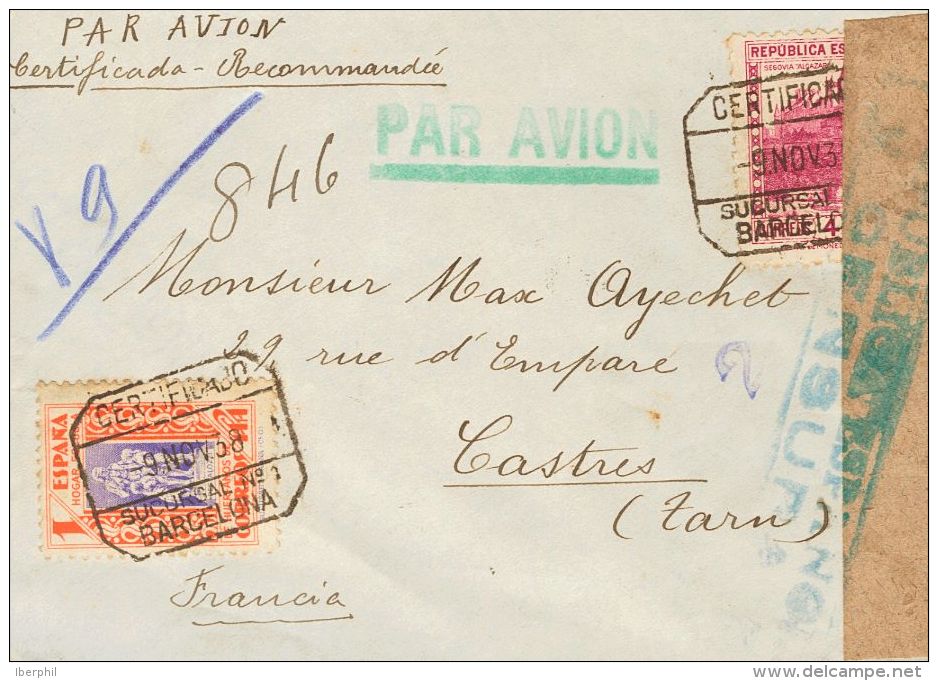 PAR AVION
Certificada - Recommandée
PAR AVION
REPÚBLICA ES
SEGOVIA "ALCAZAR
CERTIFICA
-9.NOV.3
SUCURSAL
BARCELO
CORREOS 4
V 9
846
Monsieur Max Ayechet
29 rue d'Empare
2
Castres
(Tarn)
CERTIFICADO
-9.NOV.38
SUCURSAL Nº 1
BARCELONA
1
ESPAÑA
HOGA
CORREOS
Francia
Iberphil
delcampe.net